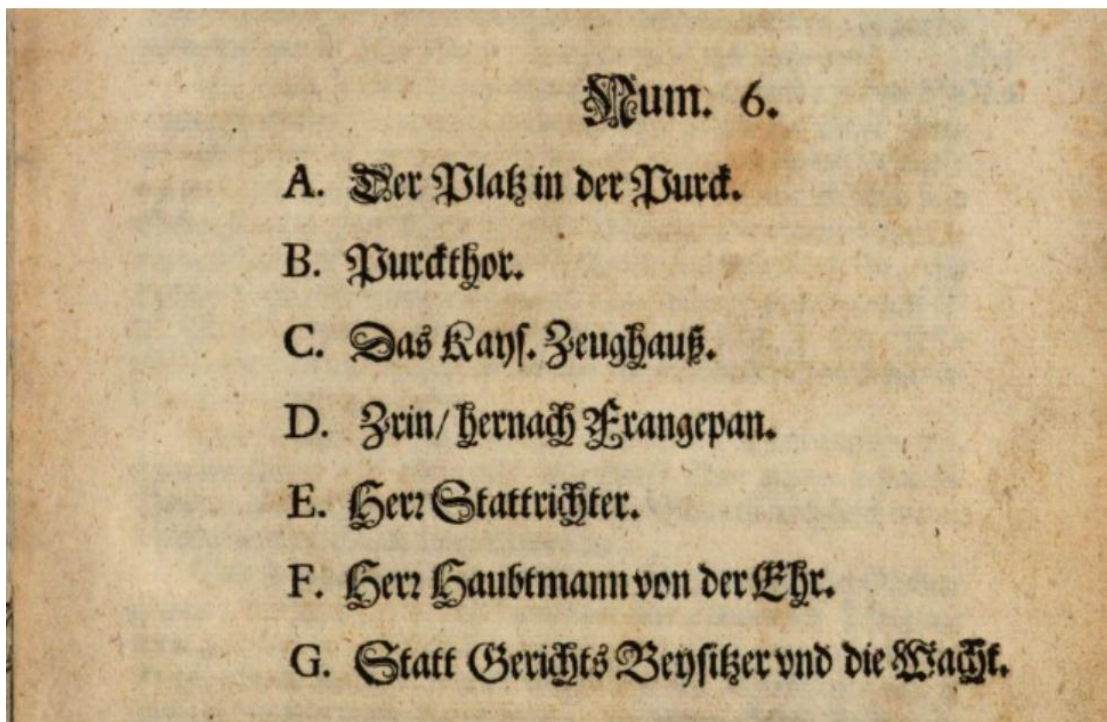 Num. 6.
A. Der Platz in der Purck.
B. Purckthor.
C. Das Kays. Zeughauß.
D. Zrin/ hernach Frangepan.
E. Herr Stattrichter.
F. Herr Haubtmann von der Ehr.
G. Statt Gerichts Beysitzer vnd die Wacht.